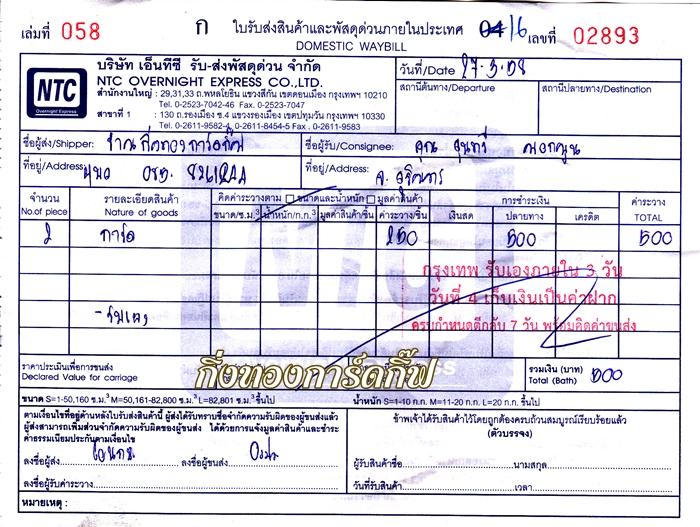 เล่มที่ 058
ก
ใบรับส่งสินค้าและพัสดุด่วนภายในประเทศ
DOMESTIC WAYBILL
04/6 เลขที่ 02893
NTC
Overnight Express
บริษัท เอ็นทีซี รับ-ส่งพัสดุด่วน จำกัด
NTC OVERNIGHT EXPRESS CO.,LTD.
สำนักงานใหญ่ : 29,31,33 ถ.พหลโยธิน แขวงสีกัน เขตดอนเมือง กรุงเทพฯ 10210
Tel. 0-2523-7042-46 Fax. 0-2523-7047
สาขาที่ 1 : 130 ถ.รองเมือง ซ.4 แขวงรองเมือง เขตปทุมวัน กรุงเทพฯ 10330
Tel. 0-2611-9582-4, 0-2611-8454-5 Fax. 0-2611-9583
วันที่/Date
สถานีต้นทาง/Departure
สถานีปลายทาง/Destination
ชื่อผู้ส่ง/Shipper:
ชื่อผู้รับ/Consignee: คุณ
ที่อยู่/Address:
ที่อยู่/Address:
จำนวน
No.of piece
รายละเอียดสินค้า
Nature of goods
คิดค่าระวางตาม ขนาดและน้ำหนัก มูลค่าสินค้า
ขนาด/ซ.ม.³ น้ำหนัก/ก.ก.³ มูลค่าสินค้า/ชิ้น ค่าระวาง/ชิ้น
การชำระเงิน
เงินสด ปลายทาง เครดิต
ค่าระวาง
TOTAL
2 การ์ด 250 500 500
กรุงเทพ รับเองภายใน 3 วัน
วันที่ 4 เก็บเงินเป็นค่าฝาก
ครบกำหนดตีกลับ 7 วัน พร้อมคิดค่าขนส่ง
กิ่งทองการ์ดกิ๊ฟ
ราคาประเมินเพื่อการขนส่ง
Declared Value for carriage
รวมเงิน (บาท)
Total (Bath) 500
ขนาด S=1-50,160 ซ.ม.³ M=50,161-82,800 ซ.ม.³ L=82,801 ซ.ม.³ขึ้นไป
น้ำหนัก S=1-10 ก.ก. M=11-20 ก.ก. L=20 ก.ก. ขึ้นไป
ตามเงื่อนไขที่อยู่ด้านหลังใบรับส่งสินค้านี้ ผู้ส่งได้รับทราบข้อจำกัดความรับผิดของผู้ขนส่งแล้ว
ผู้ส่งสามารถเพิ่มส่วนจำกัดความรับผิดของผู้ขนส่ง ได้ด้วยการแจ้งมูลค่าสินค้าและชำระ
ค่าธรรมเนียมประกันตามเงื่อนไข
ลงชื่อผู้ส่ง
ลงชื่อผู้ขนส่ง
ลงชื่อผู้รับค่าระวาง
ข้าพเจ้าได้รับสินค้าไว้โดยถูกต้องครบถ้วนสมบูรณ์เรียบร้อยแล้ว
(ตัวบรรจง)
ผู้รับสินค้าชื่อ นามสกุล
วันที่รับสินค้า เวลา
หมายเหตุ :